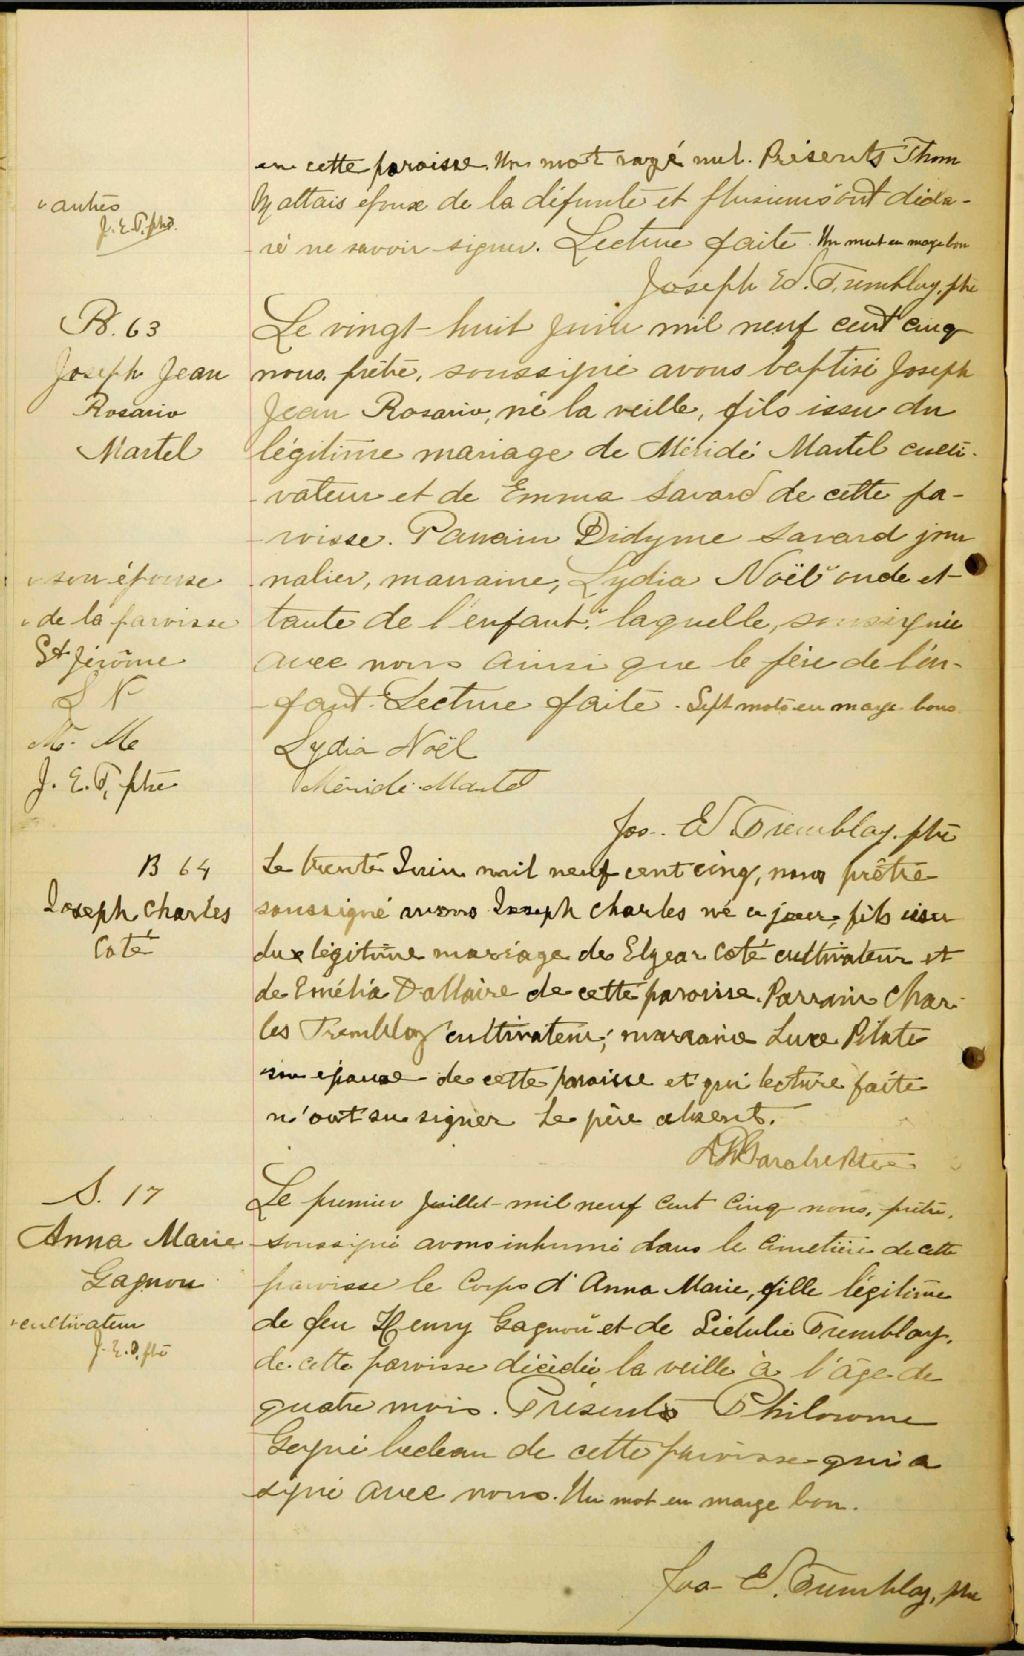 en cette paroisse. Un mot rayé nul. Présents Thom
Maltais époux de la défunte et plusieurs ont décla-
v autres
J. E. T. ptre.
-ré ne savoir signer. Lecture faite. Un mot en marge bon
Joseph Ed. Tremblay, ptre
B. 63
Joseph Jean
Rosario
Martel
Le vingt-huit juin mil neuf cent cinq
nous, prêtre, soussigné avons baptisé Joseph
Jean Rosario, né la veille, fils issu du
légitime mariage de Méridé Martel culti-
-vateur et de Emma Savard de cette pa-
-roisse. Parrain Didyme Savard jour
nalier, marraine, Lydia Noël v oncle et
tante de l'enfant. v laquelle, soussignée
avec nous ainsi que le père de l'en-
-fant. Lecture faite. Sept mots en marge bons.
v son épouse
v de la paroisse
St Jérôme
L N
M. Me
J. E. T, ptre
Lydia Noël
Méridé Martel
Jos. Ed. Tremblay, ptre
B 64
Joseph Charles
Coté
Le trente Juin mil neuf cent cinq, nous prêtre
soussigné avons Joseph Charles né ce jour, fils issu
du légitime mariage de Elzear Coté cultivateur et
de Emélia Dallaire de cette paroisse. Parrain Char-
les Tremblay cultivateur; marraine Luce Pilote
son épouse de cette paroisse et qui lecture faite
n'ont su signer Le père absent.
S. 17
Anna Marie
Gagnon
v cultivateur
J. E. T, ptre
Le premier Juillet mil neuf cent cinq nous, prêtre,
soussigné avons inhumé dans le cimetière de cette
paroisse le corps d'Anna Marie, fille légitime
de feu Henry Gagnon v et de Lédulie Tremblay,
de cette paroisse décédée la veille à l'âge de
quatre mois. Présents Philomme
Gagné bedeau de cette paroisse qui a
signé avec nous. Un mot en marge bon.
Jos Ed. Tremblay, ptre